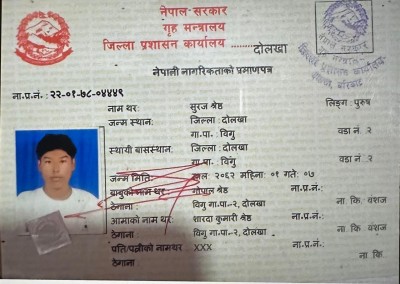 नेपाल सरकार
गृह मन्त्रालय
जिल्ला प्रशासन कार्यालय ........दोलखा
नेपाली नागरिकताको प्रमाणपत्र
ना.प्र.नं.: २२-०१-७८-०४४४९
नाम थर: सुरज श्रेष्ठ लिङ्ग: पुरुष
जन्म स्थान: जिल्ला: दोलखा
गा.पा.. विगु वडा नं. २
स्थायी बासस्थान: जिल्ला: दोलखा
गा.पा.. विगु वडा नं. २
जन्म मिति: साल: २०६२ महिना: ०९ गते: ०७
बाबुको नाम थर: गोपाल श्रेष्ठ ना.प्र.नं.:
ठेगाना: विगु गा.पा.-२, दोलखा ना. कि. वंशज
आमाको नाम थर: शारदा कुमारी श्रेष्ठ ना.प्र.नं.:
ठेगाना विगु गा.पा.-२, दोलखा ना. कि: वंशज
पति/पत्नीको नामथर: XXX ना.प्र.नं.:
ठेगाना ना. कि